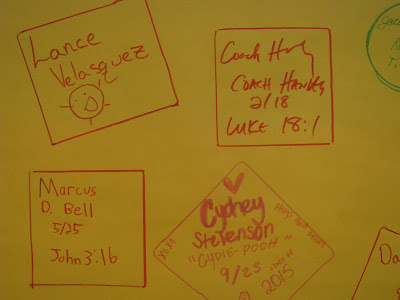 Lance
Velasquez
Coach
COACH
2/18
LUKE 18:1
Marcus
D. Bell
5/25
John 3:16
Cydney
Stevenson
"CYDIE-POOH"
9/23
2015
xoxo